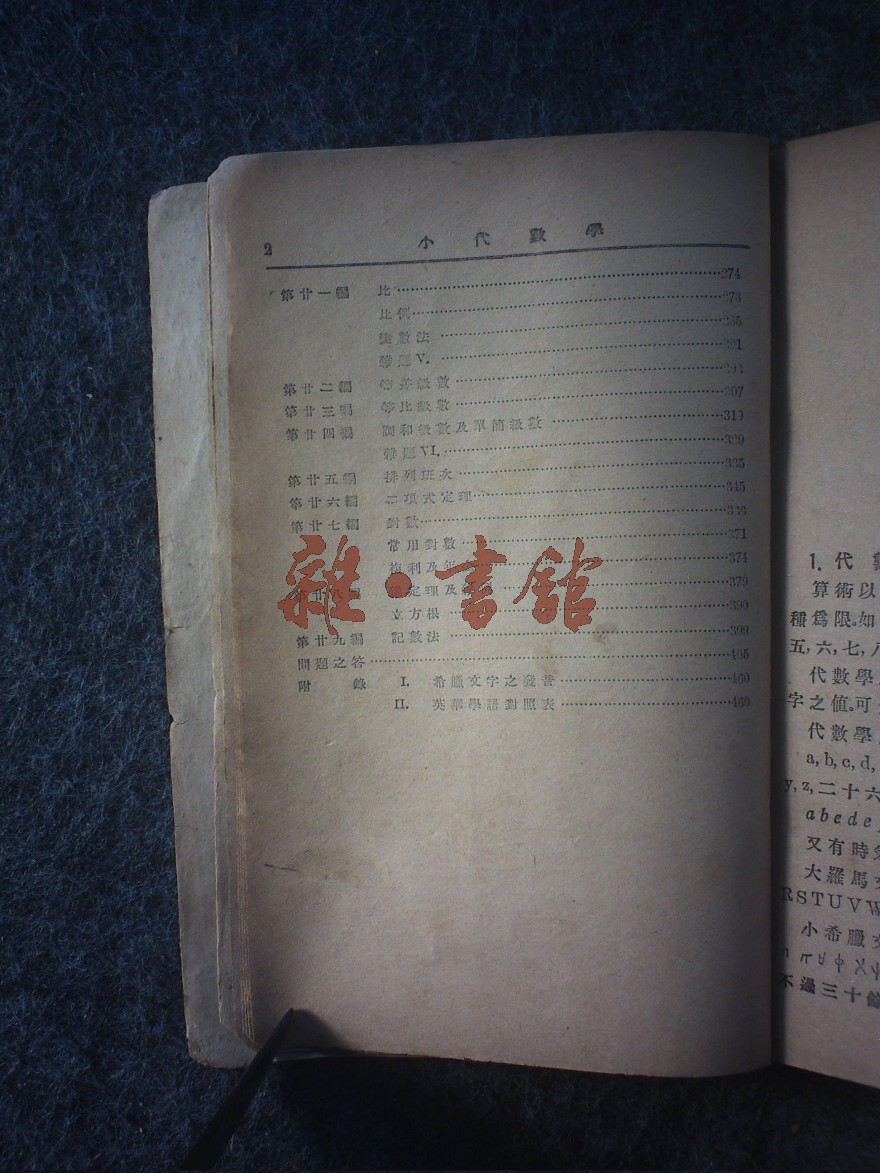 2 小代數學
第廿一編 比 274
比例 278
變數法 285
雜題V. 291
第廿二編 等差級數
第廿三編 等比級數 307
第廿四編 調和級數及單簡級數 319
雜題VI. 329
第廿五編 排列班次 335
第廿六編 二項式定理 345
第廿七編 對數
常用對數 371
複利及年 374
第廿八編 定理及 379
立方根 390
第廿九編 記數法 399
問題之答 405
附錄 I. 希臘文字之發音 460
II. 英華學語對照表 460
雜·書館
1. 代
算術以
種爲限。如
五,六,七,八
代數學
字之值。可
代數學
a, b, c, d,
y, z, 二十六
a b c d e
又有時
大羅馬
RSTUVW
小希臘
不過三十餘